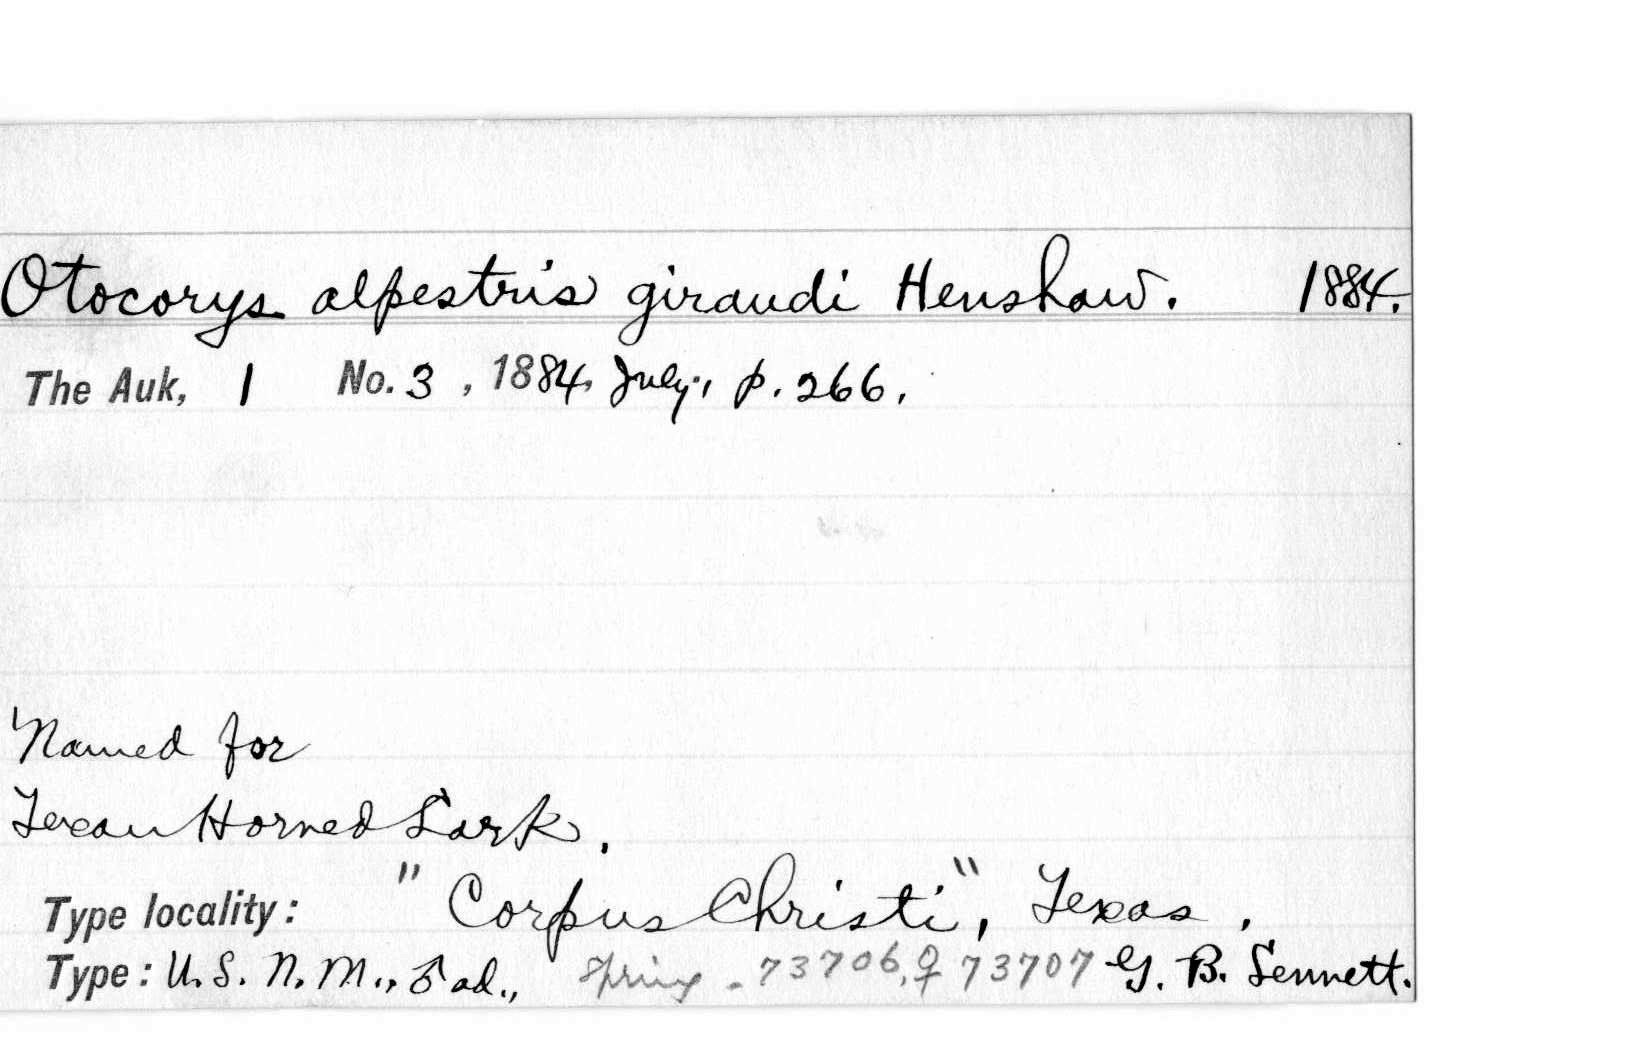 Otocorys alpestris giraudi Henshaw. 1884.
The Auk, 1 No. 3, 1884, July, p. 266.
Named for
Texan Horned Lark.
Type locality: "Corpus Christi", Texas.
Type: U. S. N. M., ♂ ad., Spring - 73706, ♀ 73707 G. B. Sennett.